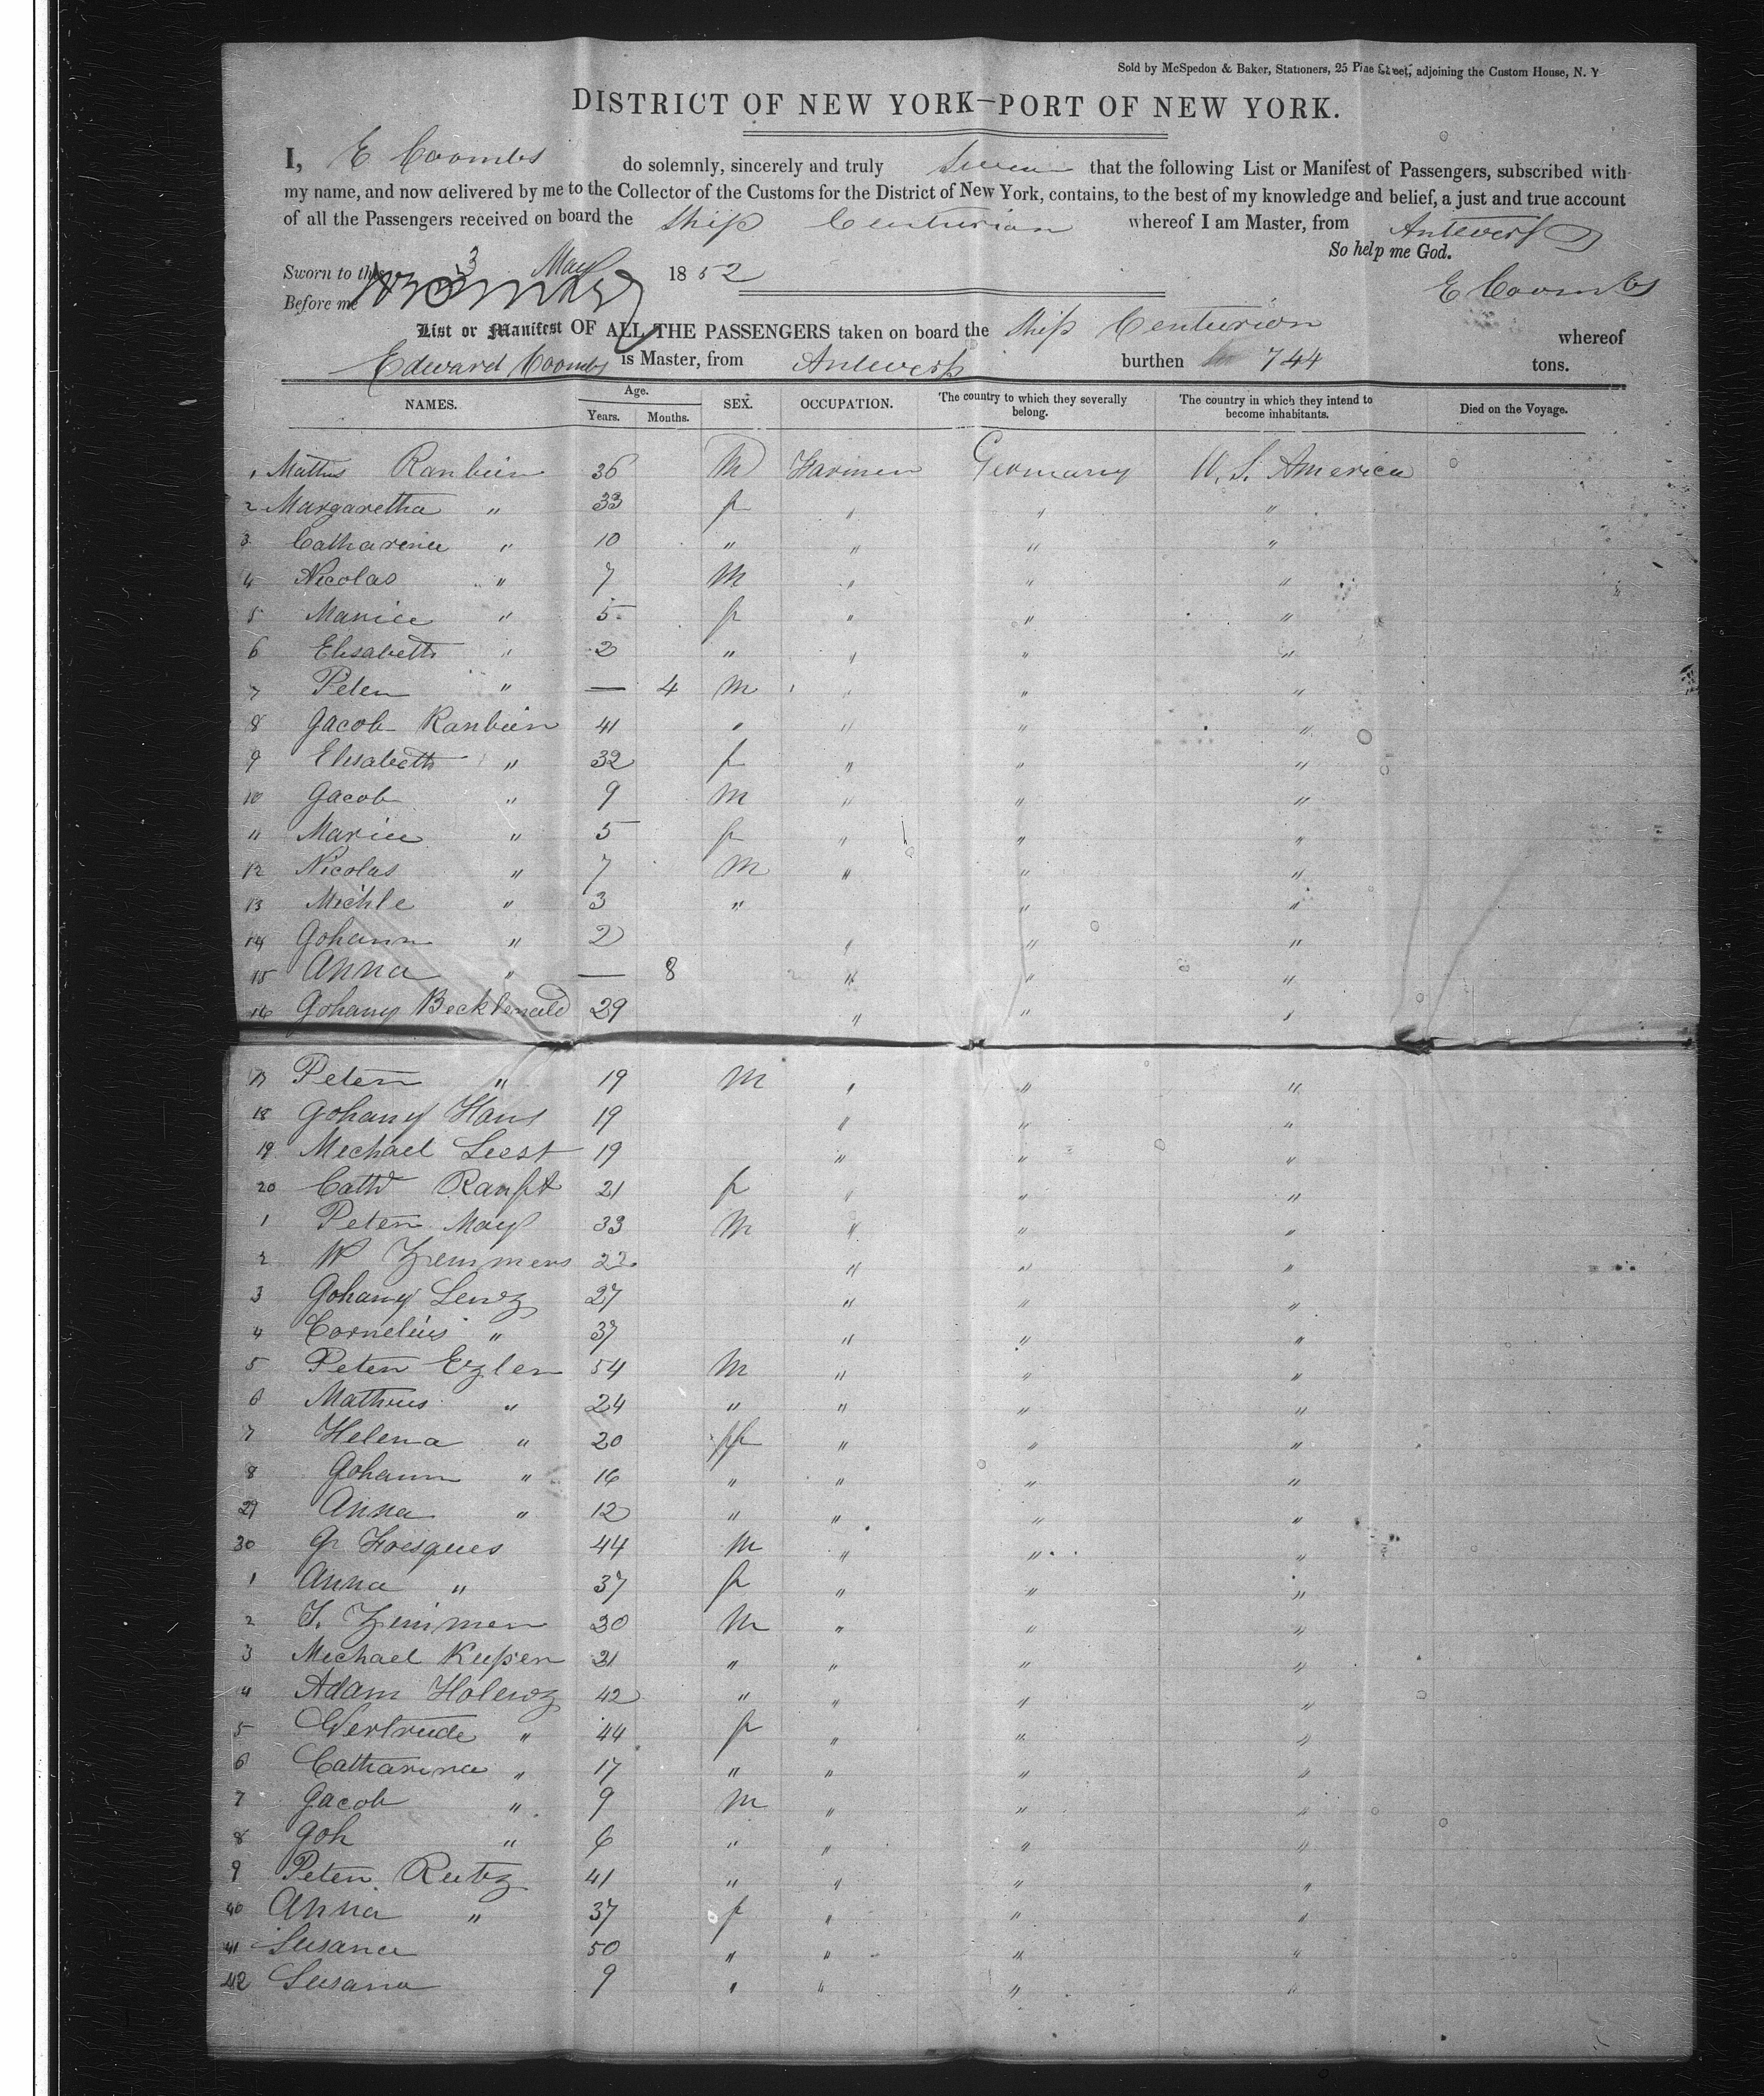 Sold by McSpedon & Baker, Stationers, 25 Pine Street, adjoining the Custom House, N. Y
DISTRICT OF NEW YORK—PORT OF NEW YORK.
I, E Coombs do solemnly, sincerely and truly Swear that the following List or Manifest of Passengers, subscribed with
my name, and now delivered by me to the Collector of the Customs for the District of New York, contains, to the best of my knowledge and belief, a just and true account
of all the Passengers received on board the Ship Centurion whereof I am Master, from Antwerp
So help me God.
Sworn to this 3 May 1852
E Coombs
Before me
List or Manifest OF ALL THE PASSENGERS taken on board the Ship Centurion whereof
Edward Coombs is Master, from Antwerp burthen 744 tons.
NAMES. Age. Years. Months. SEX. OCCUPATION. The country to which they severally belong. The country in which they intend to become inhabitants. Died on the Voyage.
1 Mathus Ranbein 36 M Farmer Germany U. S. America
2 Margaretha " 33 f " " "
3 Catharina " 10 " " " "
4 Nicolas " 7 M " " "
5 Mariee " 5 f " " "
6 Elisabeth " 2 " " " "
7 Peter " — 4 M " " "
8 Jacob Ranbein 41 " " " "
9 Elisabeth " 32 f " " "
10 Jacob " 9 M " " "
11 Mariee " 5 f " " "
12 Nicolas " 7 M " " "
13 Michle " 3 " " "
14 Johann " 2 " " "
15 Anna " — 8 " " "
16 Johany 29 " " "
17 Peter " 19 M " " "
18 Johany Hans 19 " " "
19 Mechael Leest 19 " " "
20 Cath Ranft 21 f " " "
1 Peter May 33 M " " "
2 Zemmers 22 " " "
3 Johany Lenz 27 " " "
4 Cornelius " 37 " " "
5 Peter Ezler 54 M " " "
6 Matheus " 24 " " " "
7 Helena " 20 f " " "
8 Johann " 16 " " " "
29 Anna " 12 " " " "
30 Jr Foesques 44 M " " "
1 Anna " 37 f " " "
2 Zemmer 30 M " " "
3 Mechael Kuper 21 " " " "
4 Adam Holewz 42 " " " "
5 Gertrude " 44 f " " "
6 Catharina " 17 " " " "
7 Jacob " 9 M " " "
8 Joh " 6 " " " "
9 Peter Reutz 41 " " " "
40 Anna " 37 f " " "
41 Susana 50 " " " "
42 Susana 9 " " " "